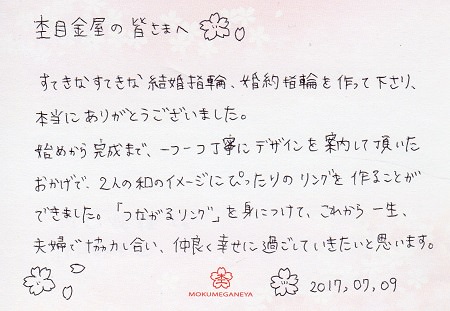 杢目金屋の皆さまへ
すてきなすてきな結婚指輪、婚約指輪を作って下さり、
本当にありがとうございました。
始めから完成まで、一つ一つ丁寧にデザインを案内して頂いた
おかげで、2人の和のイメージにぴったりのリングを作ることが
できました。「つながるリング」を身につけて、これから一生、
夫婦で協力し合い、仲良く幸せに過ごしていきたいと思います。
MOKUMEGANEYA
2017,07,09